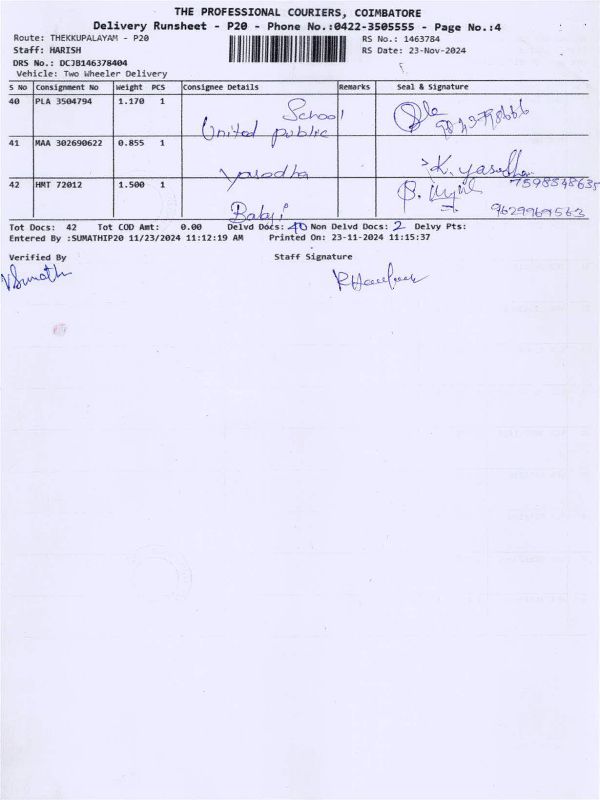 THE PROFESSIONAL COURIERS, COIMBATORE
Delivery Runsheet - P20 - Phone No.:0422-3505555 - Page No.:4
Route: THEKKUPALAYAM - P20 RS No.: 1463784
Staff: HARISH RS Date: 23-Nov-2024
DRS No.: DCJB146378404
Vehicle: Two Wheeler Delivery
S No Consignment No Weight PCS Consignee Details Remarks Seal & Signature
40 PLA 3504794 1.170 1
School
United public
41 MAA 302690622 0.855 1
yasodha K. yasodha
7598548635
42 HMT 72012 1.500 1
Babji 9629969563
Tot Docs: 42 Tot COD Amt: 0.00 Delvd Docs: 40 Non Delvd Docs: 2 Delvy Pts:
Entered By :SUMATHIP20 11/23/2024 11:12:19 AM Printed On: 23-11-2024 11:15:37
Verified By Staff Signature
VSumathi